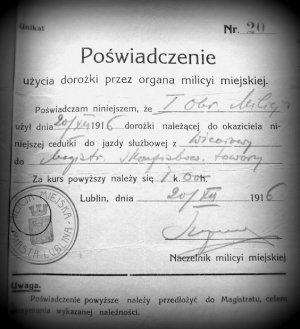 Unikat
Nr. 20
Poświadczenie
użycia dorożki przez organa milicyi miejskiej.
Poświadczam niniejszem, że I obr. Milicji
użył dnia 20/XII 1916 dorożki należącej do okaziciela ni-
niejszej cedułki do jazdy służbowej z
do Magistr. towary
Za kurs powyższy należy się
Lublin, dnia 20/XII 1916
Naczelnik milicyi miejskiej
MILICJA MIEJSKA
MIASTA LUBLINA
Uwaga.
Poświadczenie powyższe należy przedłożyć do Magistratu, celem
otrzymania wykazanej należności.